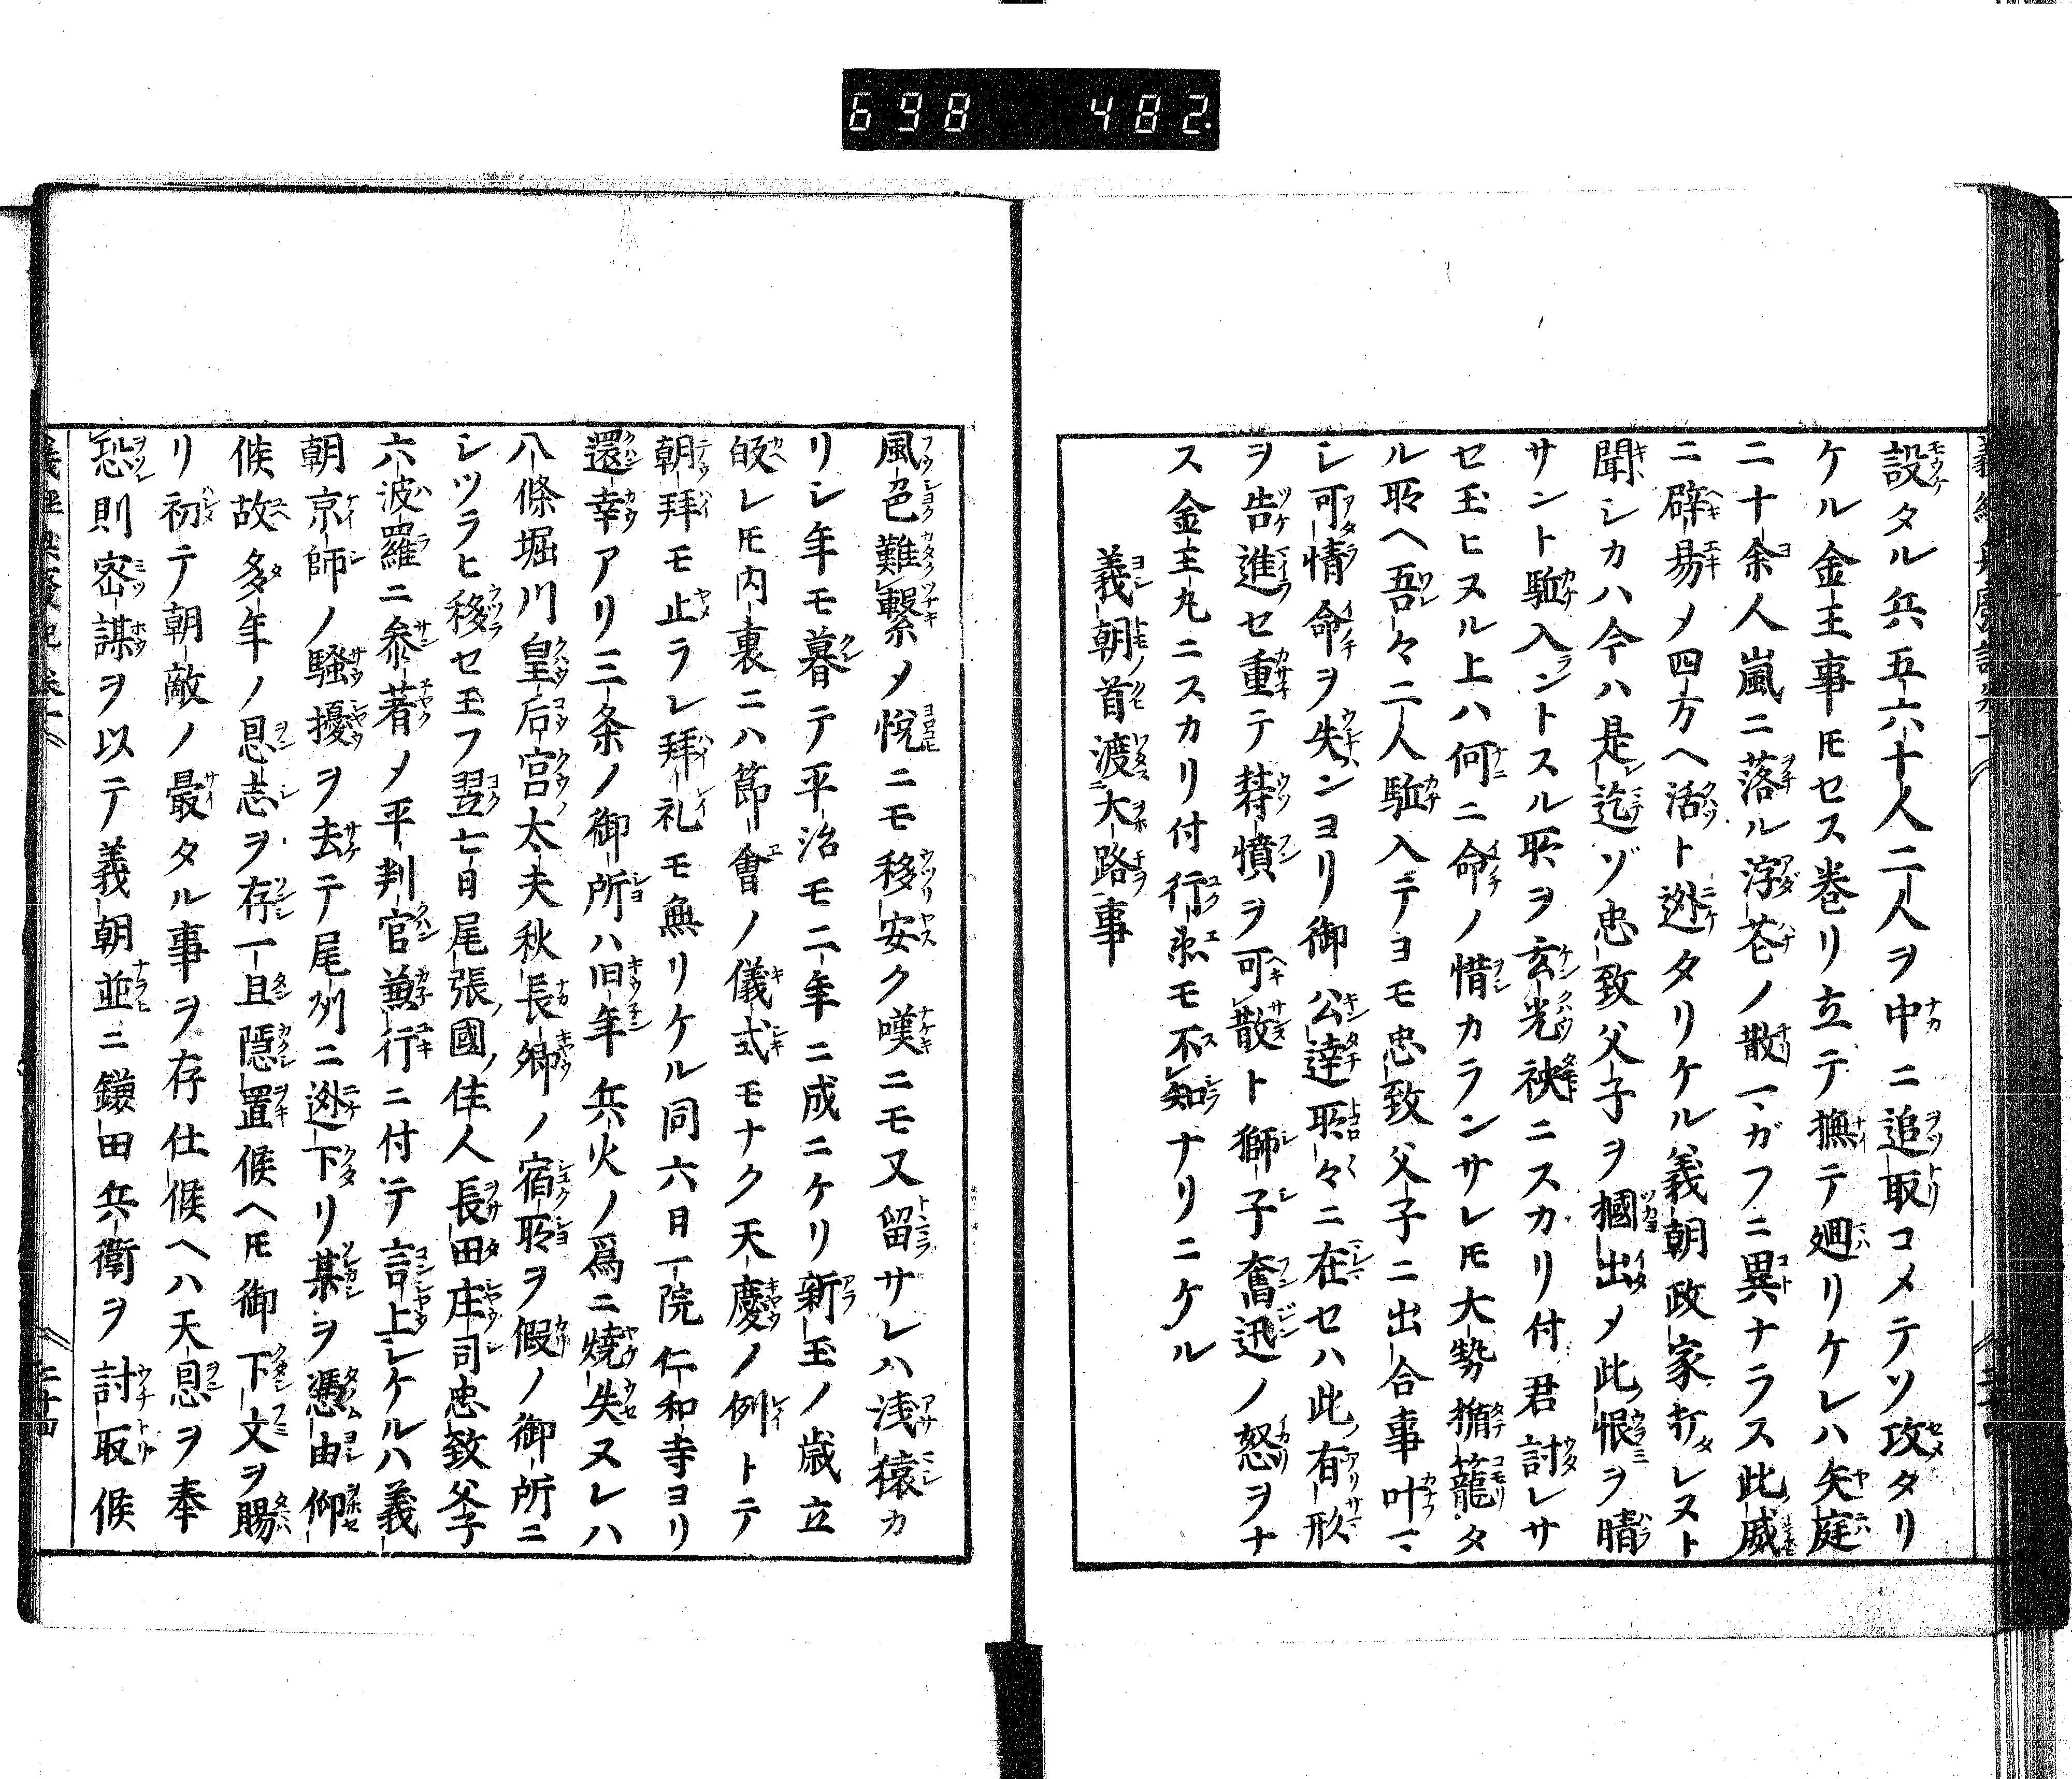 698 482.
設タル兵五六十人二人ヲ中ニ追取コメテソ攻タリ
ケル金王事𪜈セス巻リ立テ撫テ廻リケレハ矢庭
ニ十余人嵐ニ落ル浮花ノ散一ガフニ異ナラス此威
ニ辟易メ四方ヘ活ト逃タリケル義朝政家打レヌト
聞シカハ今ハ是迄ゾ忠致父子ヲ摑出メ此恨ヲ晴
サント駈入ントスル所ヲ玄光袂ニスカリ付君討レサ
セ玉ヒヌル上ハ何ニ命ノ惜カランサレ𪜈大勢楯籠タ
ル所ヘ吾々二人駈入テヨモ忠致父子ニ出合事叶ニ
シ可惜命ヲ失ンヨリ御公達所々ニ在セハ此有形
ヲ告進セ重テ欝憤ヲ可散ト獅子奮迅ノ怒ヲナ
ス金王丸ニスカリ付行衛モ不知ナリニケル
義朝首渡大路事
風色難繋メ悦ニモ移安ク嘆ニモ又留サレハ浅猿カ
リシ年モ暮テ平治モ二年ニ成ニケリ新玉ノ歳立
皈レ𪜈内裏ニハ節會ノ儀式モナク天慶ノ例トテ
朝拜モ止ラレ拜礼モ無リケル同六日一院仁和寺ヨリ
還幸アリ三条ノ御所ハ旧年兵火ノ爲ニ焼失ヌレハ
八條堀川皇后宮太夫秋長卿ノ宿所ヲ假ノ御所ニ
シツラヒ移セ玉フ翌七日尾張國住人長田庄司忠致父子
六波羅ニ参著メ平判官兼行ニ付テ言上シケルハ義
朝京師ノ騒擾ヲ去テ尾州ニ逃下リ某ヲ憑由仰
候故多年ノ恩志ヲ存一旦隠置候ヘ𪜈御下文ヲ賜
リ初テ朝敵ノ最タル事ヲ存仕候ヘハ天恩ヲ奉
恐則密謀ヲ以テ義朝並ニ鎌田兵衛ヲ討取候